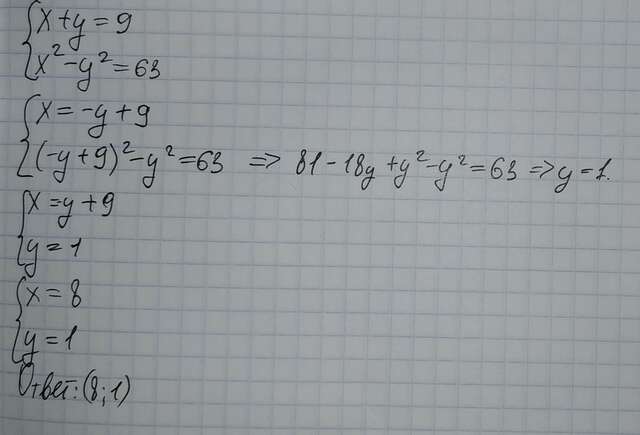 {x+y=9
x²-y²=63
{x=-y+9
(-y+9)²-y²=63 => 81-18y+y²-y²=63=>y=1.
{x=y+9
y=1
{x=8
y=1
Ответ:(8;1)